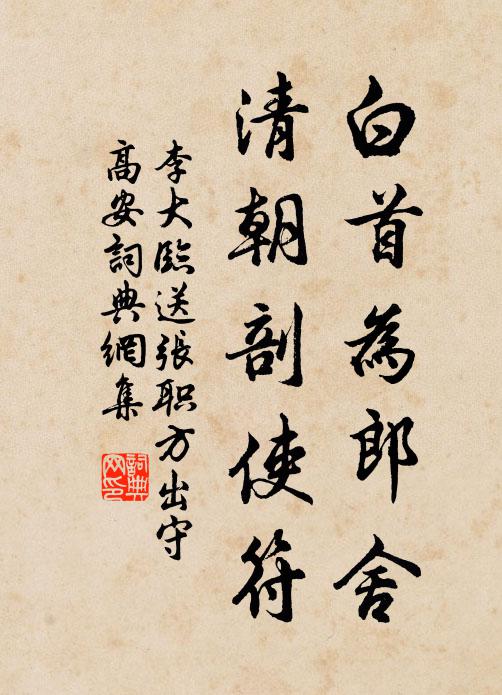 白首為郎舍
清朝剖使符
李大臨送張职方出守
高安詞典網集
詞典網印